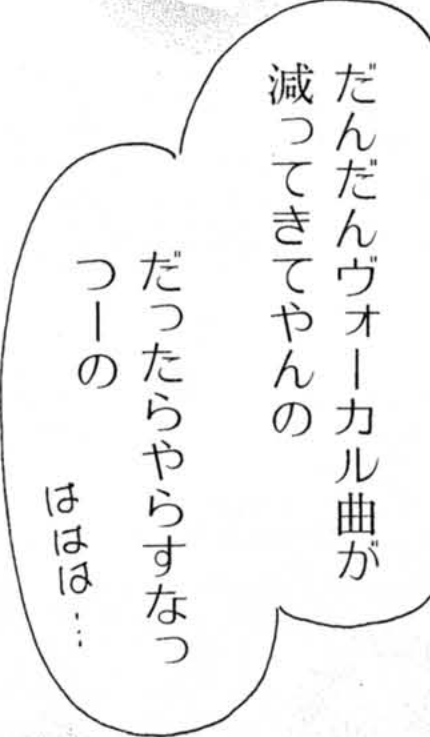 だんだんヴォーカル曲が
減ってきてやんの
だったらやらすなっ
つーの
ははは…